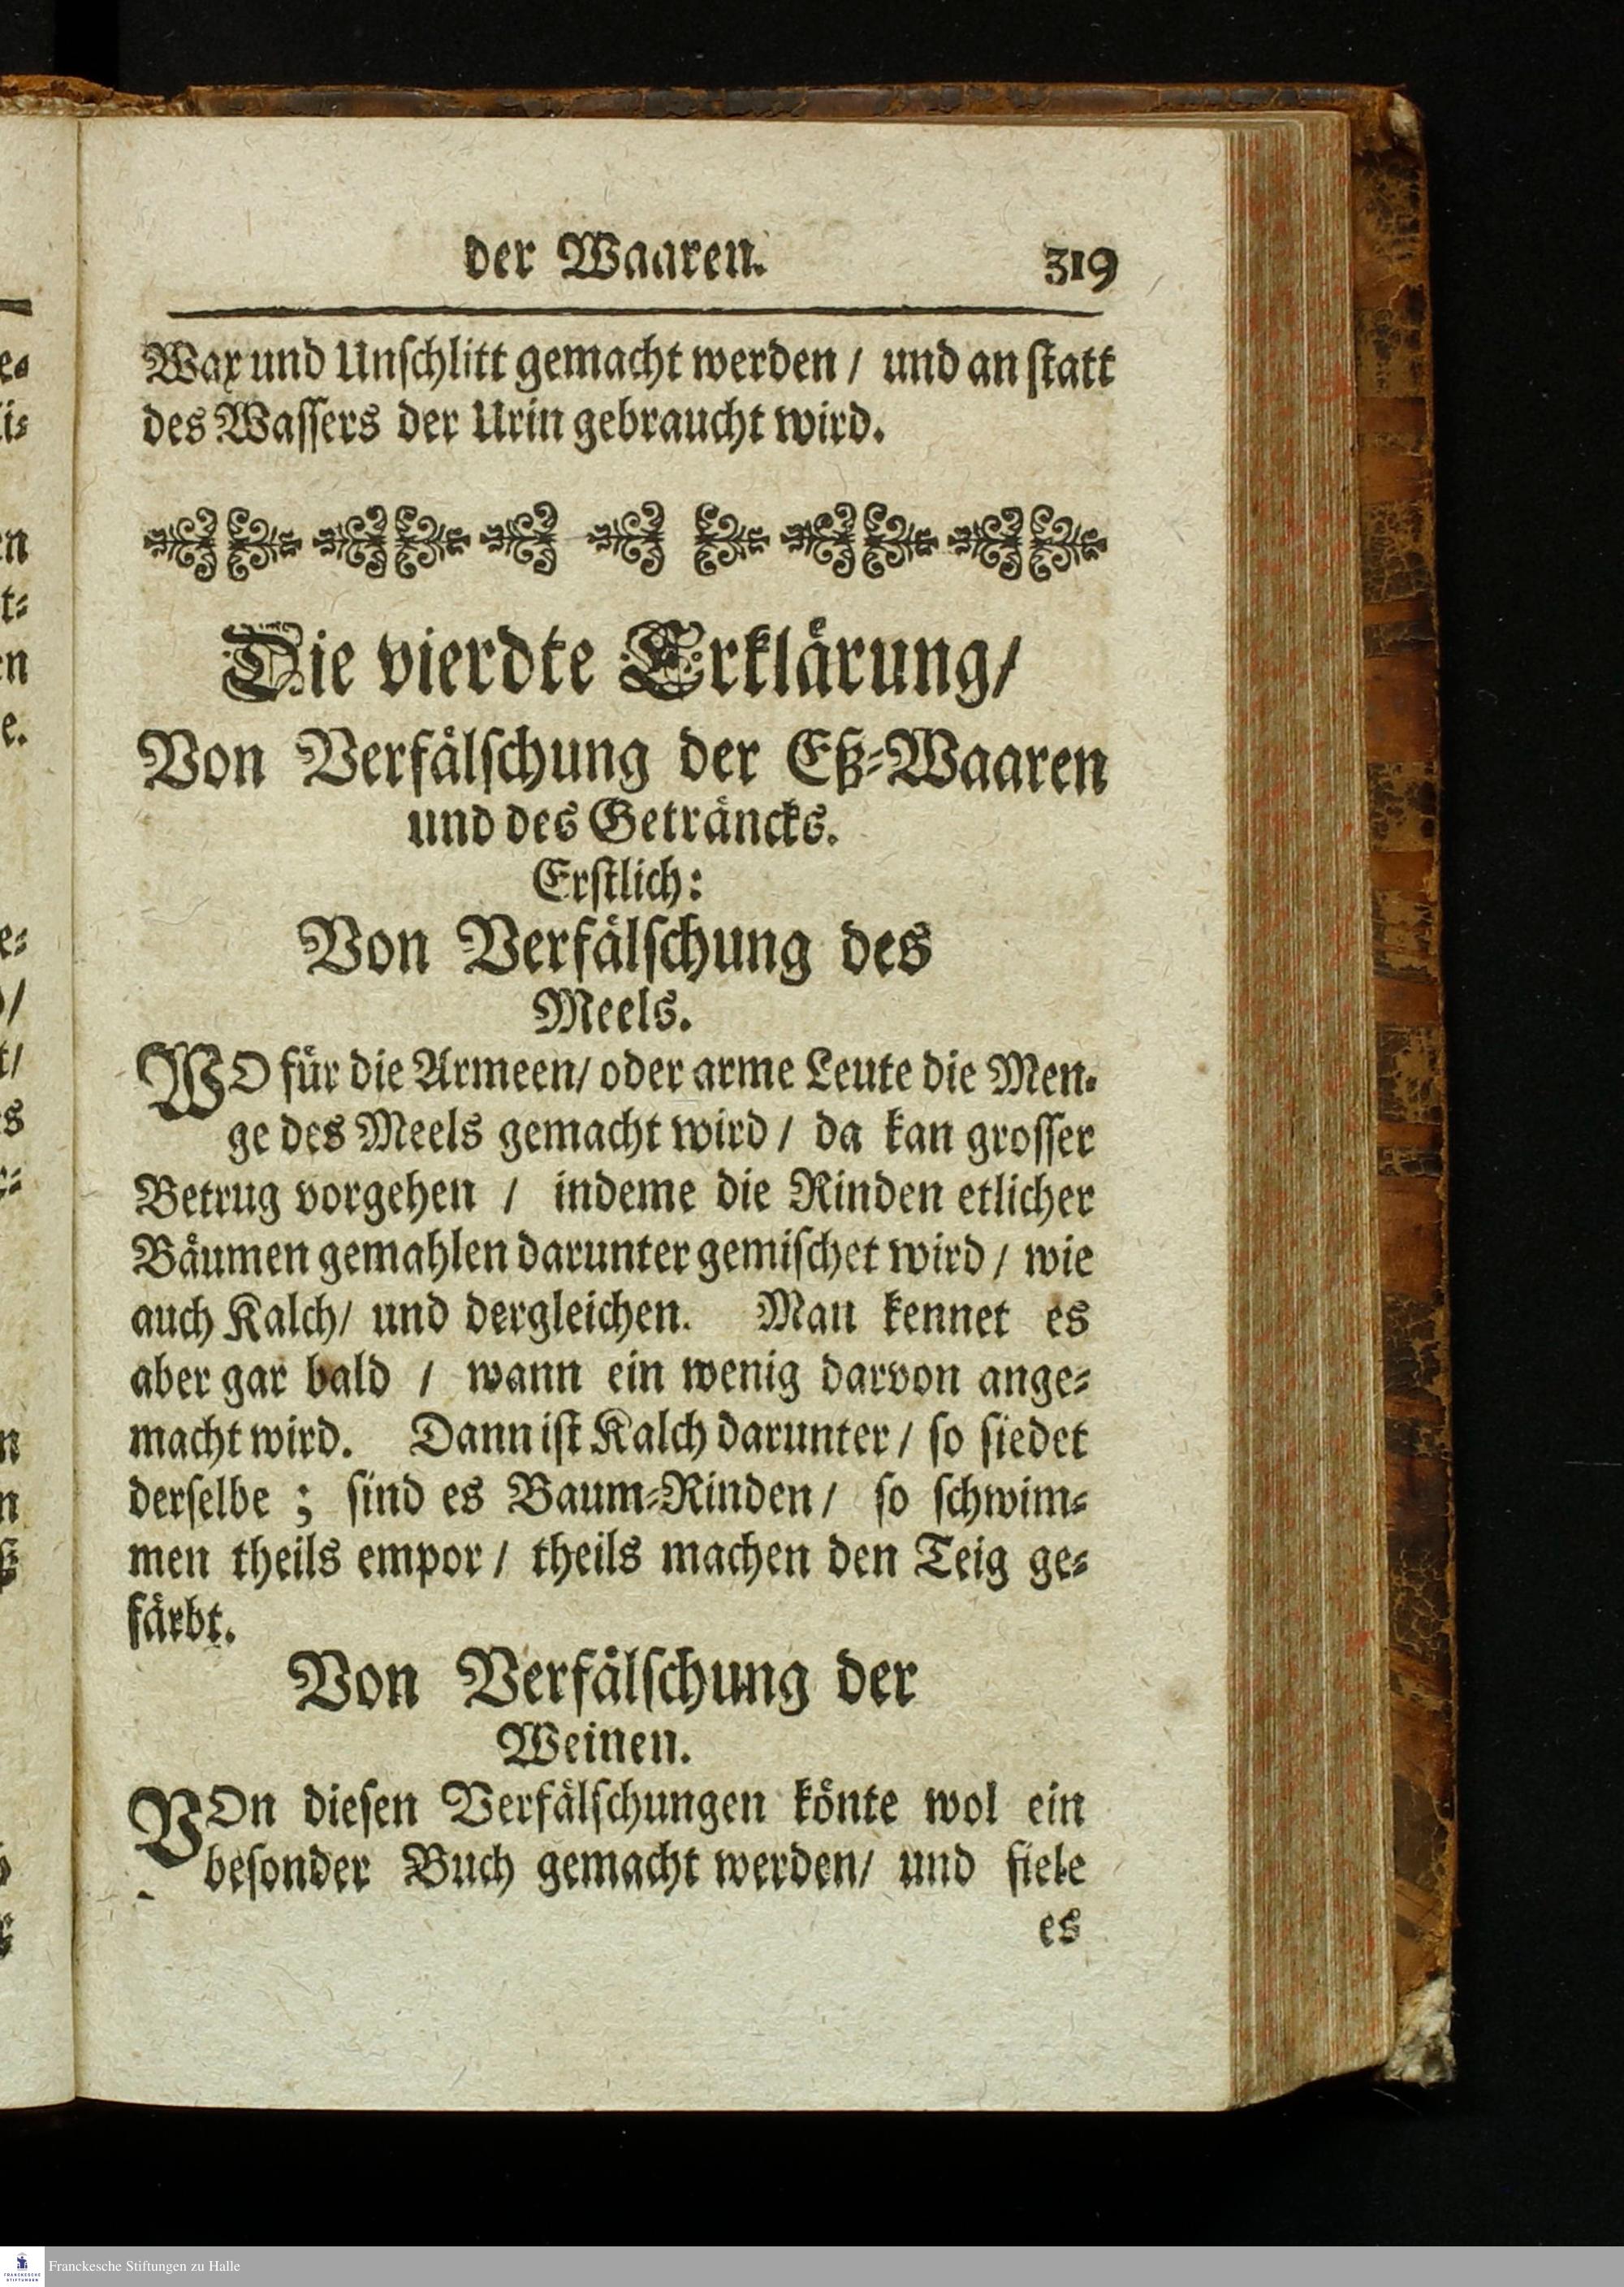 der Waaren. 319
Wax und Unschlitt gemacht werden / und an statt
des Wassers der Urin gebraucht wird.
Die vierdte Erklärung/
Von Verfälschung der Eß-Waaren
und des Geträncks.
Erstlich:
Von Verfälschung des
Meels.
WO für die Armeen/ oder arme Leute die Men-
ge des Meels gemacht wird / da kan grosser
Betrug vorgehen / indeme die Rinden etlicher
Bäumen gemahlen darunter gemischet wird / wie
auch Kalch/ und dergleichen. Man kennet es
aber gar bald / wann ein wenig darvon ange-
macht wird. Dann ist Kalch darunter / so siedet
derselbe ; sind es Baum-Rinden / so schwim-
men theils empor / theils machen den Teig ge-
färbt.
Von Verfälschung der
Weinen.
VOn diesen Verfälschungen könte wol ein
besonder Buch gemacht werden/ und fiele
es
Franckesche Stiftungen zu Halle